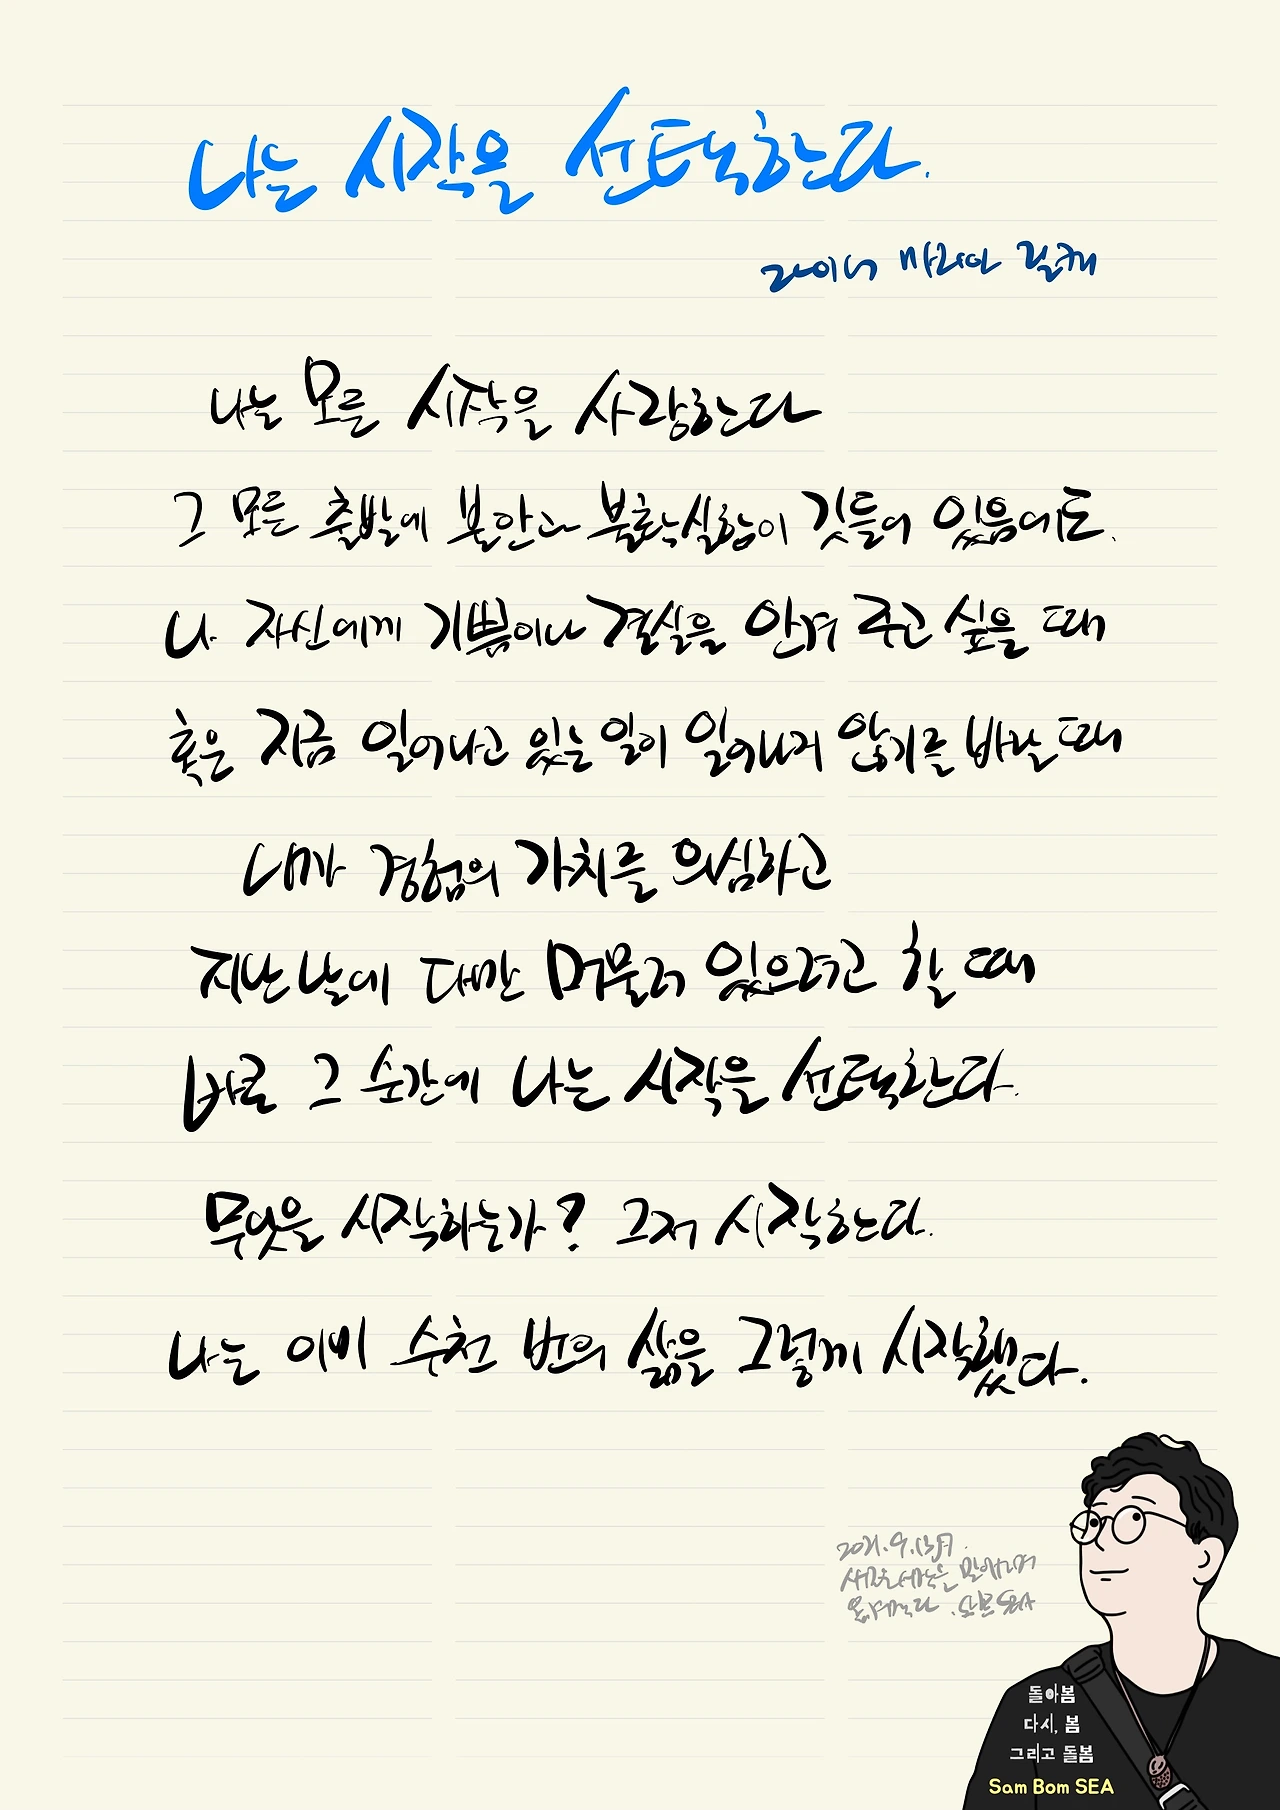 나는 시작을 선택한다.
라이너 마리아 릴케
나는 모든 시작을 사랑한다
그 모든 출발에 불안과 불확실함이 깃들어 있음에도.
나 자신에게 기쁨이나 결실을 안겨 주고 싶을 때
혹은 지금 일어나고 있는 일이 일어나지 않기를 바랄 때
내가 경험의 가치를 의심하고
지난 날에 다만 머물러 있으려고 할 때
바로 그 순간에 나는 시작을 선택한다.
무엇을 시작하는가? 그저 시작한다.
나는 이미 수천 번의 삶을 그렇게 시작했다.
2021.9.13月.
돌아봄
다시, 봄
그리고 돌봄
Sam Bom SEA